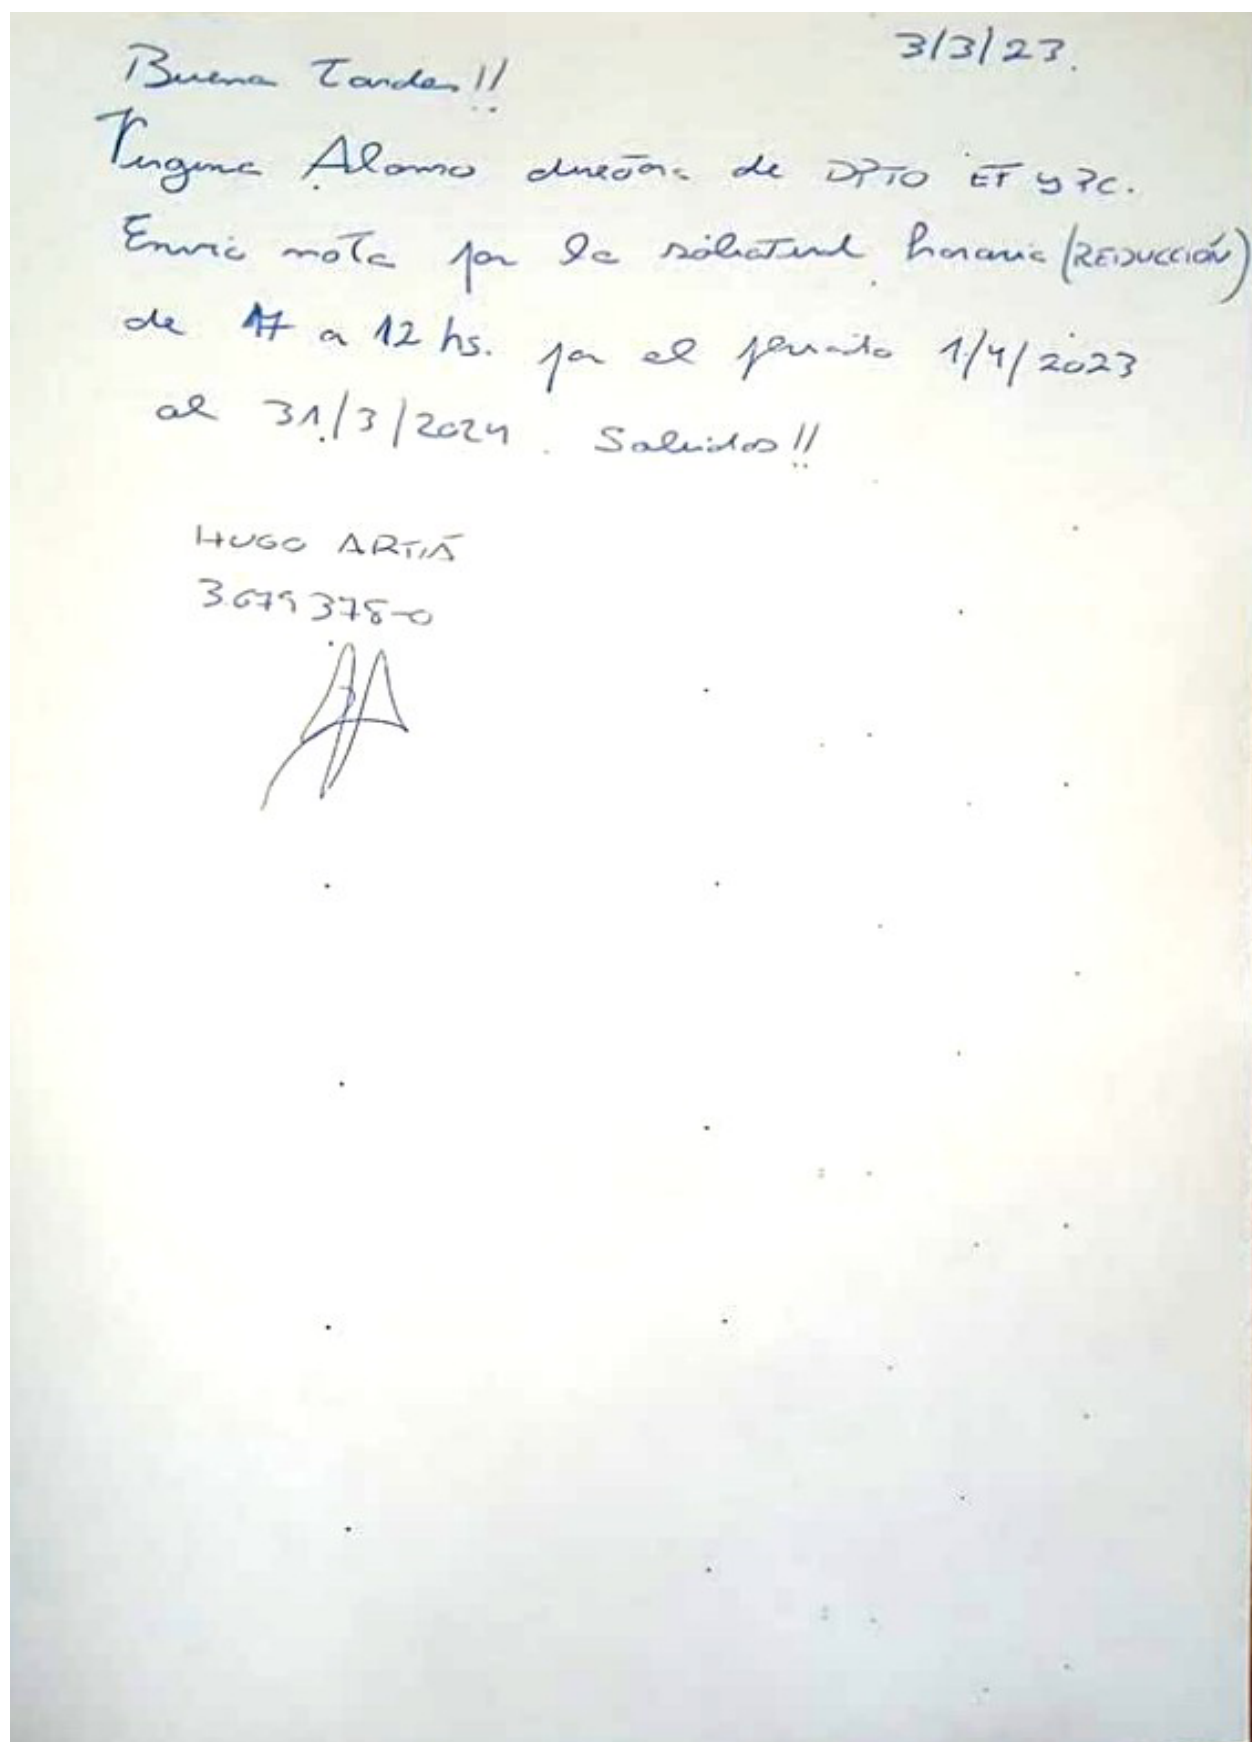 3/3/23.
Buena Tardes!!
Virginia Alonso directora de DPTO ET y PC.
Envio nota por la solicitud horaria (REDUCCIÓN)
de 17 a 12 hs. por el periodo 1/4/2023
al 31/3/2024. Saludos!!
HUGO ARTIÁ
3.679378-0